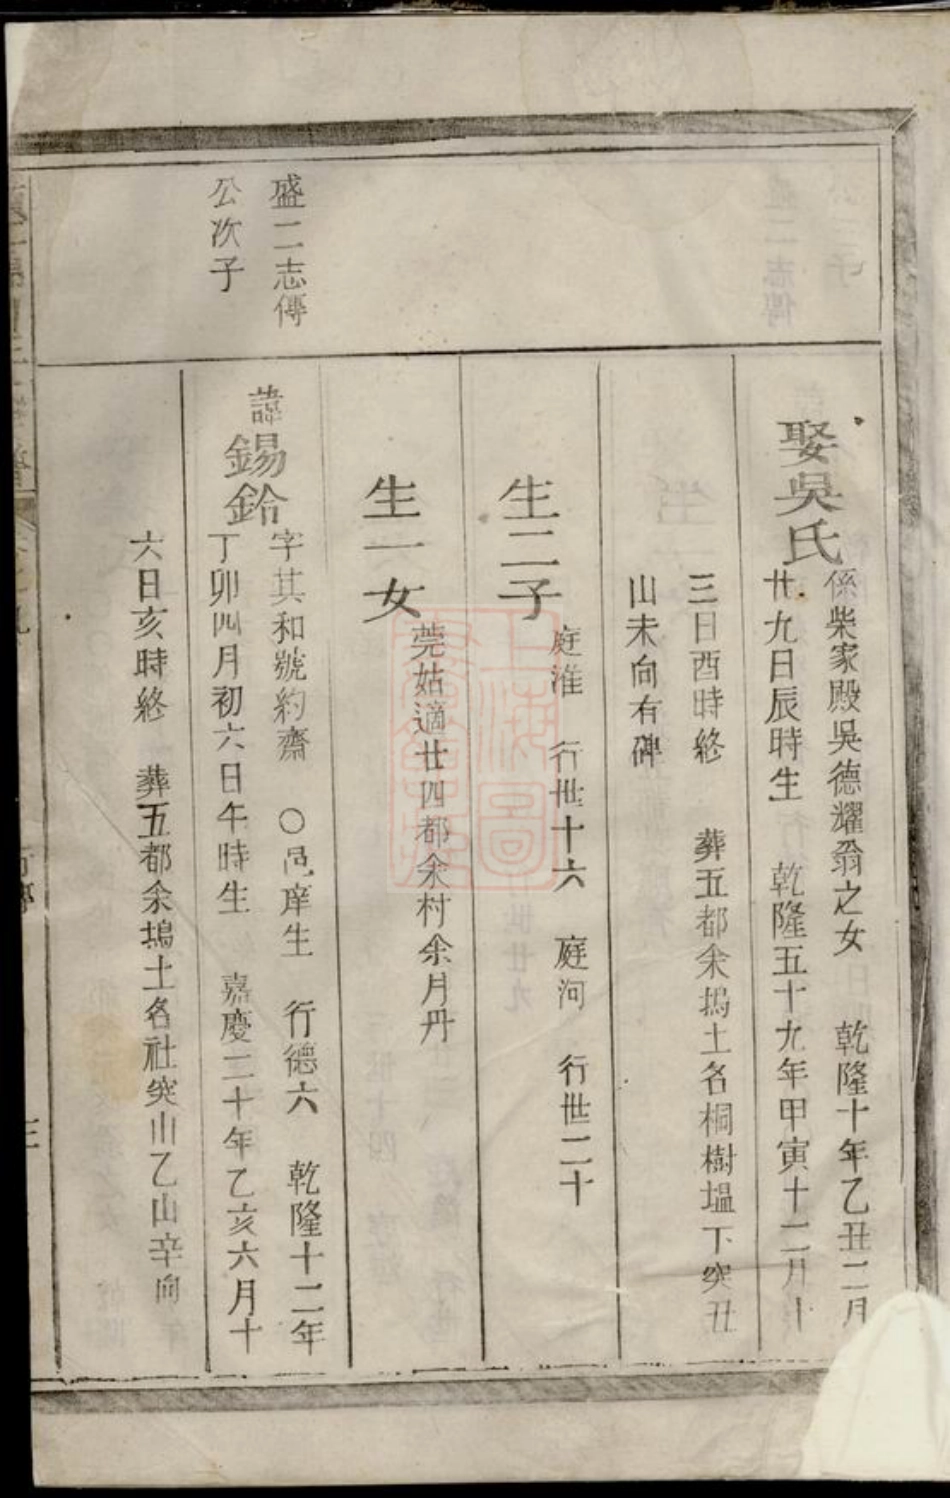 娶吳氏
係柴家殿吳德耀翁之女 乾隆十年乙丑二月
廿九日辰時生 乾隆五十九年甲寅十二月十
三日酉時終 葬五都余塢土名桐樹塭下突丑
山未向有碑
生二子
庭淮 行世十六 庭河 行世二十
生一女
莞姑適廿四都余村余月丹
盛二志傳
公次子
諱錫鈴
字其和號約齋 ○邑庠生 行德六 乾隆十二年
丁卯四月初六日午時生 嘉慶二十年乙亥六月十
六日亥時終 葬五都余塢土名社突山乙山辛向
上海圖